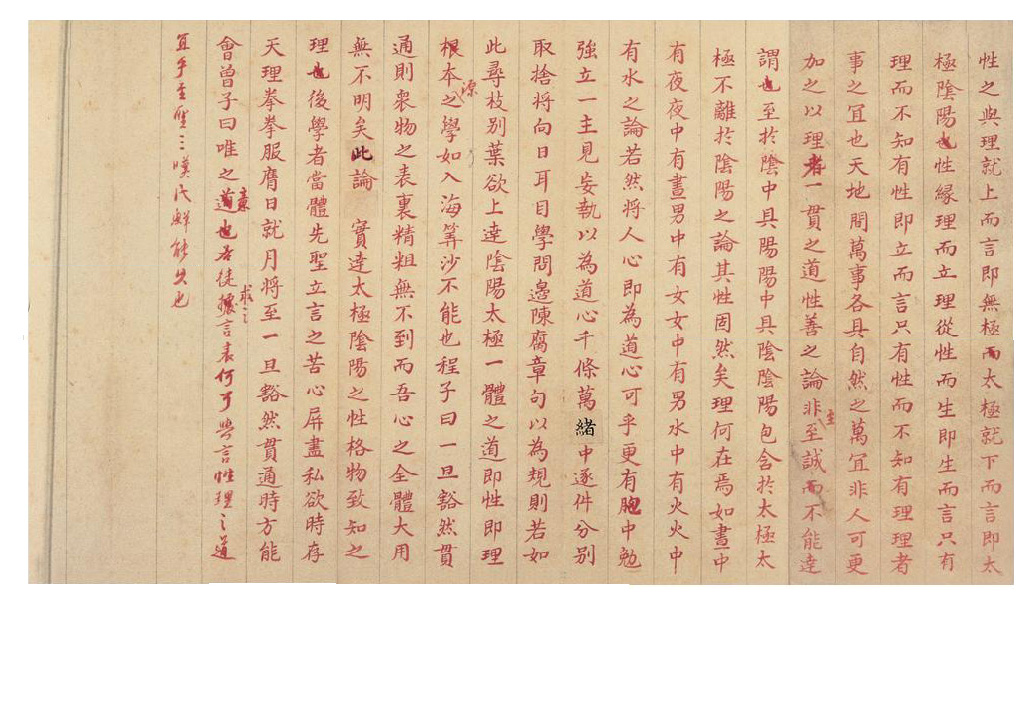 性之與理就上而言即無極而太極就下而言即太
極陰陽也性緣理而立理從性而生即生而言只有
理而不知有性即立而言只有性而不知有理理者
事之宜也天地間萬事各具自然之萬宜非人可更
加之以理者一貫之道性善之論非至誠而不能達
謂也至於陰中具陽陽中具陰陰陽包含於太極太
極不離於陰陽之論其性固然矣理何在焉如晝中
有夜夜中有晝男中有女女中有男水中有火火中
有水之論若然將人心即為道心可乎更有胞中勉
強立一主見妄執以為道心千條萬緒中逐件分別
取捨將向日耳目學問邊陳腐章句以為規則若如
此尋枝別葉欲上達陰陽太極一體之道即性即理
根本之源學如入海筭沙不能也程子曰一旦豁然貫
通則衆物之表裏精粗無不到而吾心之全體大用
無不明矣此論 實達太極陰陽之性格物致知之
理也後學者當體先聖立言之苦心屏盡私欲時存
天理拳拳服膺日就月將至一旦豁然貫通時方能
會曾子曰唯之道也若徒據言表求之何可與言性理之道
宜乎至聖之嘆民鮮能久也